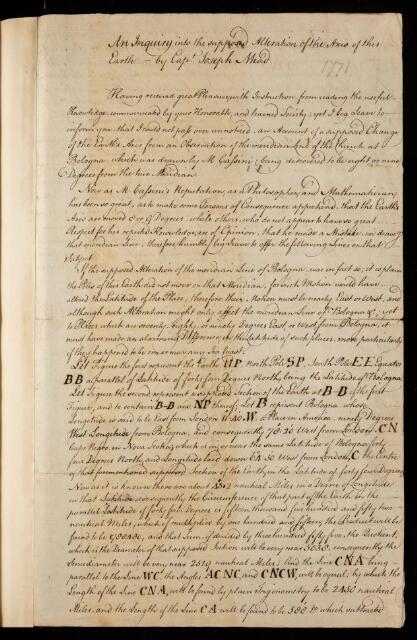 An Inquiry into the supposed Alteration of the Axis of this
Earth — by Capt. Joseph Mead.
1771
Having received great Pleasure, with Instruction from reading the useful
Knowledge communicated by your Honorable, and learned Society; yet I beg leave to
inform you that I could not pass over unnoticed, an Account of a supposed Change
of the Earths Axis from an Observation of the meridian Line of the Church at
Bologna which was drawn by M. Cassini; being discovered to be eight or nine
Degrees from the true Meridian.
Now as M. Cassinis Reputation, as a Philosopher, and Mathematician
has been so great, as to make some Persons of Consequence apprehend, that the Earths
Axis are moved 8 or 9 Degrees, while others, who do not appear to have so great
Respect for his reputed Knowledge, are of Opinion, that he made a Mistake, in drawing
that meridian Line; therefore, humbly beg leave to offer the following Lines on that
Subject.
If the supposed Alteration of the meridian Line of Bologna was in fact so, it is plain
the Poles of this Earth did not move on that Meridian, for such Motion would have
altered the Latitude of the Place; therefore their Motion must be nearly East or West, and
although such Alteration might only affect the meridian Lines of Bologna &c, yet
to Places which are seventy, eighty, or ninety Degrees East or West from Bologna, it
must have made an alarming Difference in the Latitude of such places, more particularly
if they happened to be in or near any Sea Coast.
Let Figure the first represent the Earth NP North Pole SP South Pole EE Equator
BB a parallel of Latitude of forty four Degrees North, being the Latitude of Bologna
Let Figure the second represent a supposed Section of the Earth at B-B of the first
Figure, and to contain B-B and NP thereof; Let B represent Bologna whose
Longitude is said to be East from London W a Place in America ninety Degrees
West Longitude from Bologna, and consequently 78.20 West from London, CN
Cape Negro in Nova Scotia, which is in or near the same Latitude of Bologna forty
four Degrees North, and Longitude laid down West from London, C the Centre
of that supposed Section of the Earth, in the Latitude of forty four Degrees
Now as it is known there are about nautical Miles in a Degree of Longitude
in that Latitude, consequently the Circumference of that part of the Earth in the
parallel Latitude of forty four Degrees is fifteen thousand five hundred and fifty two
nautical Miles, which if multiplied by one hundred and fifteen, the Product will be
found to be and that Sum if divided by three hundred fifty five, the Quotient,
which is the Diameter of that supposed Section will be very near consequently the
Semidiameter will be very near 2519 nautical Miles; And the Line CNA being
parallel to the Line WC the Angles ACNC, and CNCW, will be equal; by which the
Length of the Line CNA, will be found by plain Trigonometry to be 2450 nautical
Miles. and the Length of the Line CA will be found to be which subtracted